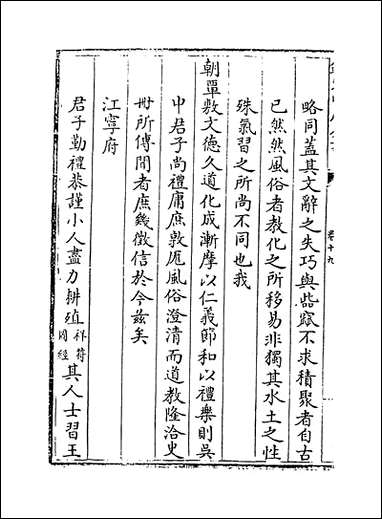 略同蓋其文辭之失巧與啙窳不求積聚者自古
已然然風俗者教化之所移易非獨其水土之性
殊氣習之所尚不同也我
朝覃敷文德久道化成漸摩以仁義節和以禮樂則吳
中君子尚禮庸庶敦厖風俗澄清而道教隆洽史
冊所傳聞者庶幾徵信於今茲矣
江寧府
君子勤禮恭謹小人盡力耕殖朴符
圖經其人士習王
卷十九